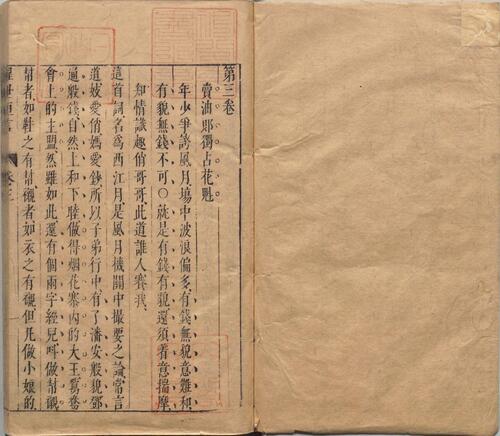 第三卷
賣油郎獨占花魁
年少爭誇風月場中波浪偏多有錢無貌意難和
有貌無錢不可○就是有錢有貌還須着意揣摩
知情識趣俏哥哥此道誰人賽我
這首詞名爲西江月是風月機關中撮要之論常言
道妓愛俏媽愛鈔所以子弟行中有了潘安般貌鄧
通般錢自然上和下睦做得烟花寨內的大王鴛鴦
會上的主盟然雖如此還有個兩字經兒呌做幫襯
幫者如鞋之有幫襯者如衣之有襯但凡做小娘的
醒世恒言
卷三